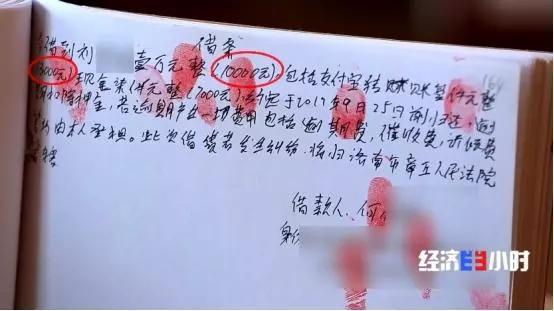 借条
借到刘 壹万元整(10000元),包括支付宝转账叁仟元整
(3000元)现金柒仟元整(7000元),约定于2017年9月25日前归还,逾
期扣除押金,若逾期产生一切费用包括逾期费,催收费,诉讼费
均由本人承担。此次借贷若发生纠纷,将归济南市章丘人民法院
借款人:何
身份
经济半小时